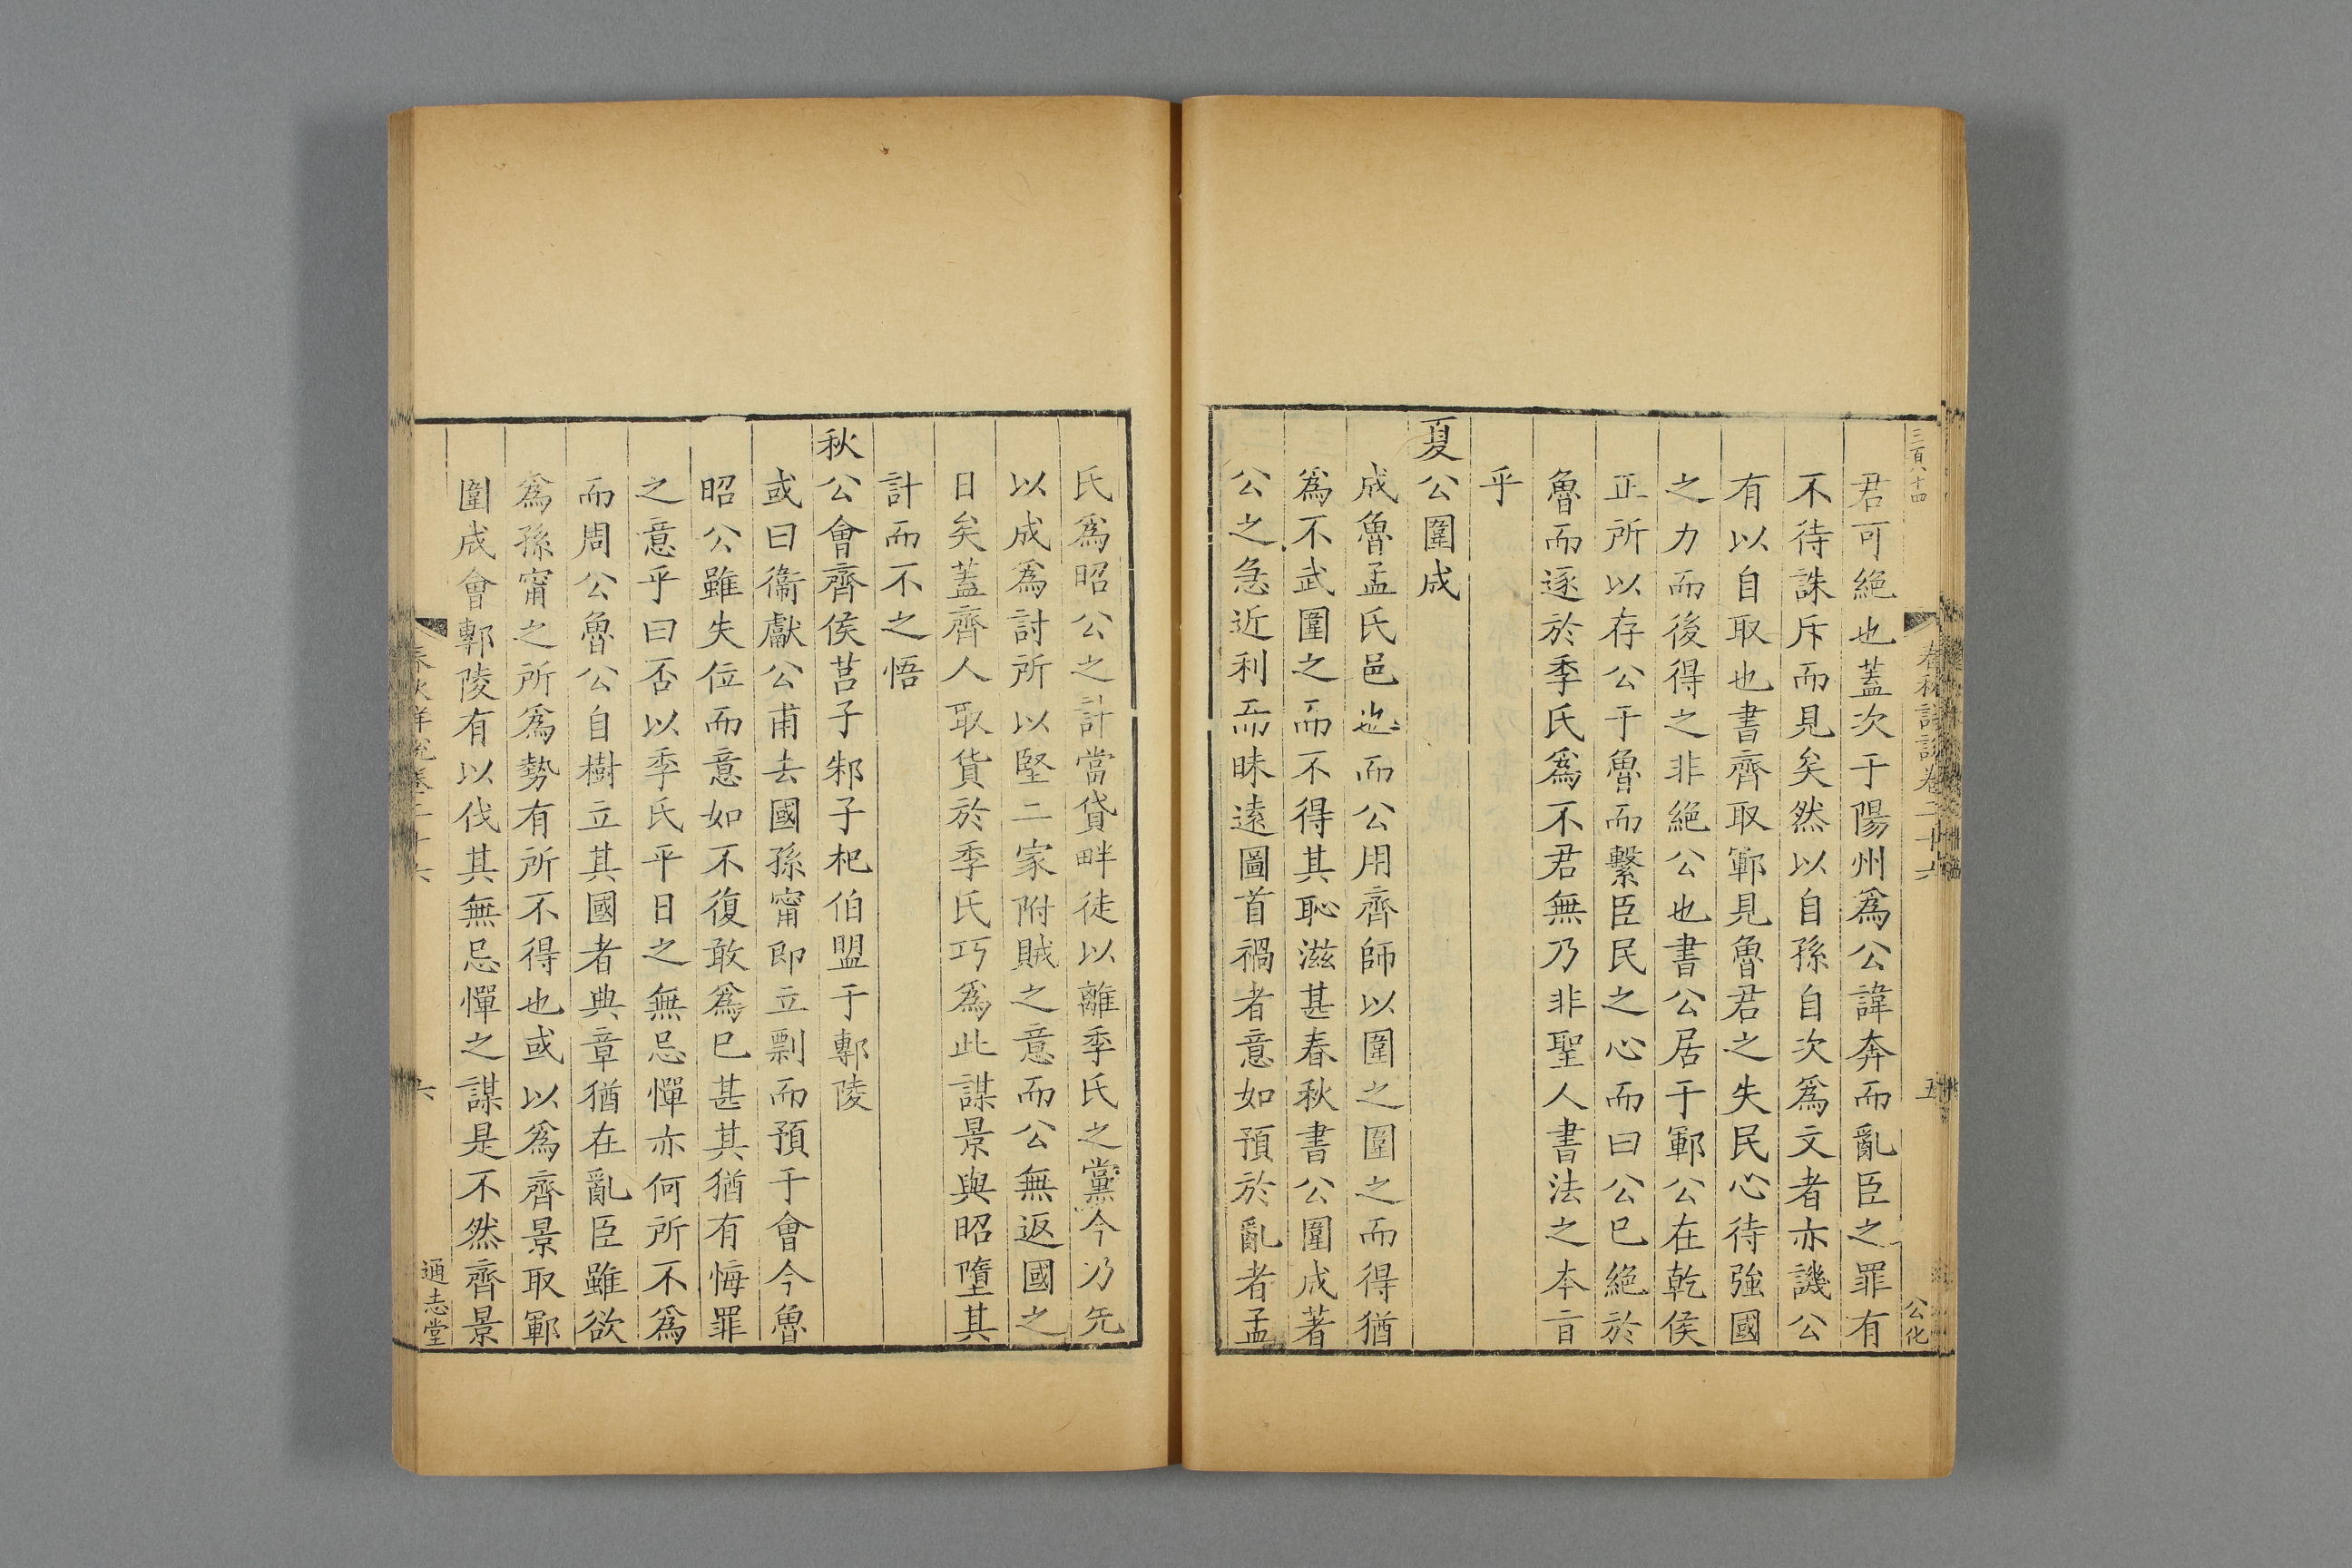 三百八十四
春秋詳說卷二十六
五
公化
君可絕也蓋次于陽州爲公諱奔而亂臣之罪有
不待誅斥而見矣然以自孫自次爲文者亦譏公
有以自取也書齊取鄆見魯君之失民心待強國
之力而後得之非絕公也書公居于鄆公在乾侯
正所以存公于魯而繫臣民之心而曰公巳絕於
魯而逐於季氏爲不君無乃非聖人書法之本㫖
乎
夏公圍成
成魯孟氏邑也而公用齊師以圍之圍之而得猶
爲不武圍之而不得其恥滋甚春秋書公圍成著
公之急近利而昧遠圖首禍者意如預於亂者孟
氏爲昭公之計當貸畔徒以離季氏之黨今乃先
以成爲討所以堅二家附賊之意而公無返國之
日矣蓋齊人取貨於季氏巧爲此謀景與昭墮其
計而不之悟
秋公會齊侯莒子邾子杞伯盟于鄟陵
或曰衞獻公甫去國孫甯即立剽而預于會今魯
昭公雖失位而意如不復敢爲巳甚其猶有悔罪
之意乎曰否以季氏平日之無忌憚亦何所不爲
而周公魯公自樹立其國者典章猶在亂臣雖欲
爲孫甯之所爲勢有所不得也或以爲齊景取鄆
圍成會鄟陵有以伐其無忌憚之謀是不然齊景
春秋詳說卷二十六
六
通志堂